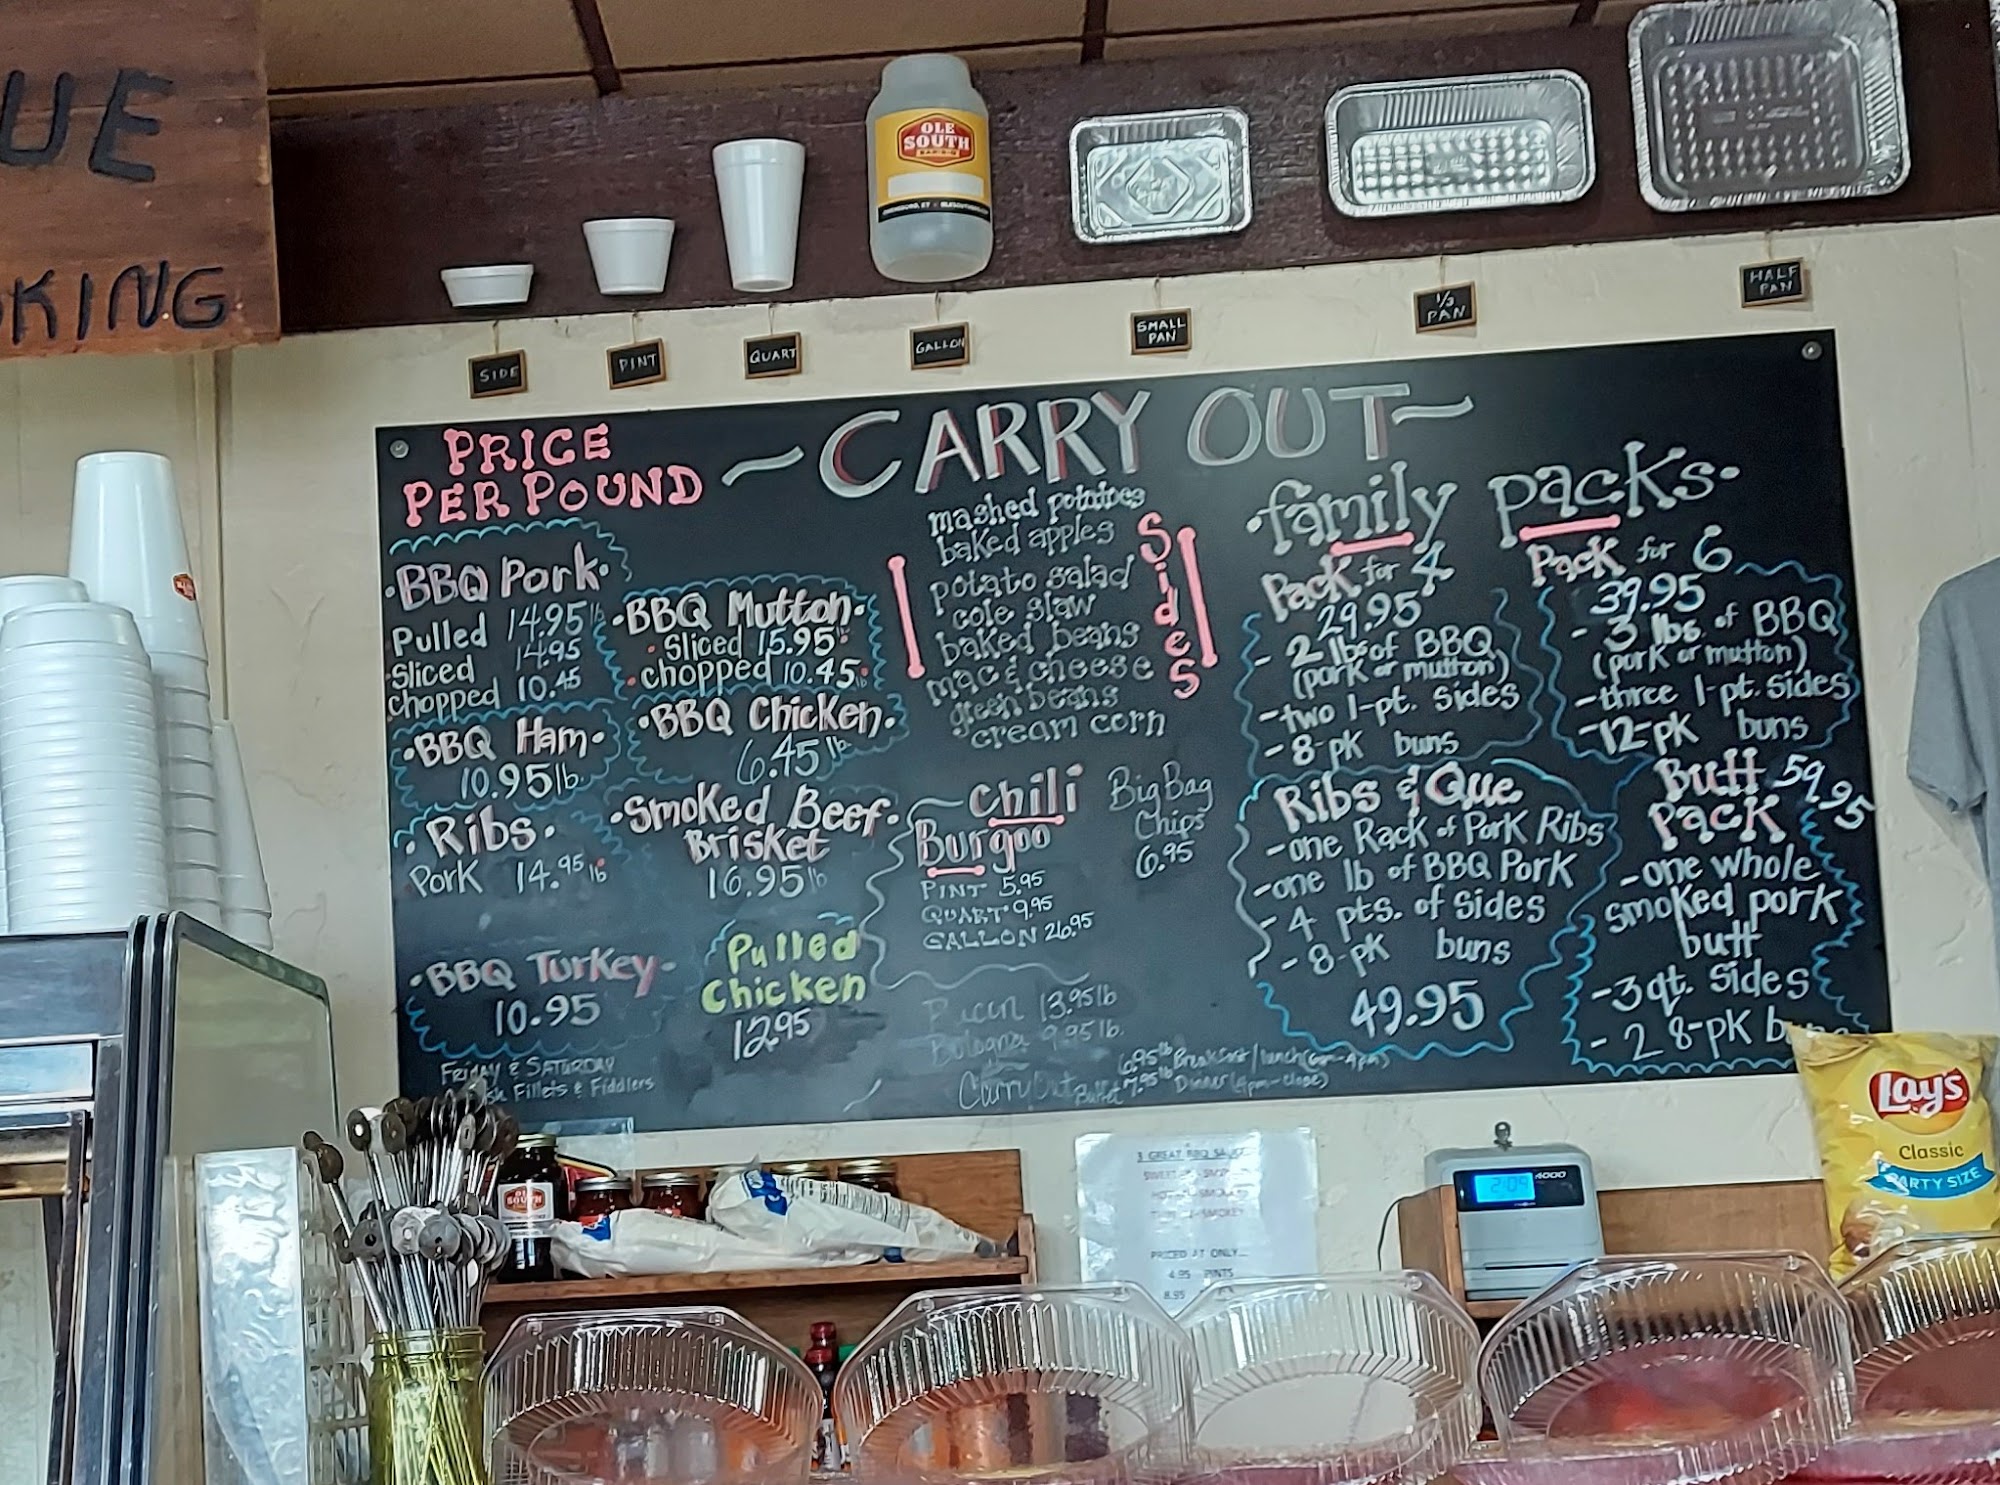 UE
KING
OLE
SOUTH
SIDE
PINT
QUART
GALLON
SMALL
PAN
1/3
PAN
HALF
PAN
~CARRY OUT~
PRICE
PER POUND
·BBQ Pork·
Pulled 14.95 lb
Sliced 14.95
chopped 10.45
·BBQ Ham·
10.95 lb
·Ribs·
Pork 14.95 lb
·BBQ Turkey·
10.95
FRIDAY & SATURDAY
Fillets & Fiddlers
·BBQ Mutton·
·Sliced 15.95
·chopped 10.45·
·BBQ Chicken·
6.45 lb
·Smoked Beef·
Brisket
16.95 lb
Pulled
Chicken
12.95
mashed potatoes
baked apples
potato salad
cole slaw
baked beans
mac & cheese
green beans
cream corn
Sides
Chili
Burgoo
PINT 5.95
QUART 9.95
GALLON 26.95
Big Bag
Chips
6.95
13.95 lb
Bologna 9.95 lb.
Carry Out Buffet
6.95 lb Breakfast/lunch (6am-4pm)
7.95 lb Dinner (4pm-close)
·family packs·
Pack for 4
29.95
- 2 lbs of BBQ
(pork or mutton)
-two 1-pt. sides
-8-pk buns
Pack for 6
39.95
- 3 lbs. of BBQ
(pork or mutton)
-three 1-pt. sides
-12-pk buns
Ribs & Que
-one Rack of Pork Ribs
-one lb of BBQ Pork
-4 pts. of sides
-8-pk buns
49.95
Butt 59.95
Pack
-one whole
smoked pork
butt
-3 qt. sides
- 2 8-pk
Lay's
Classic
PARTY SIZE
2:09
4000
3 GREAT BBQ
PRICED AT ONLY...
4.95 PINTS
8.95
OLE
SOUTH